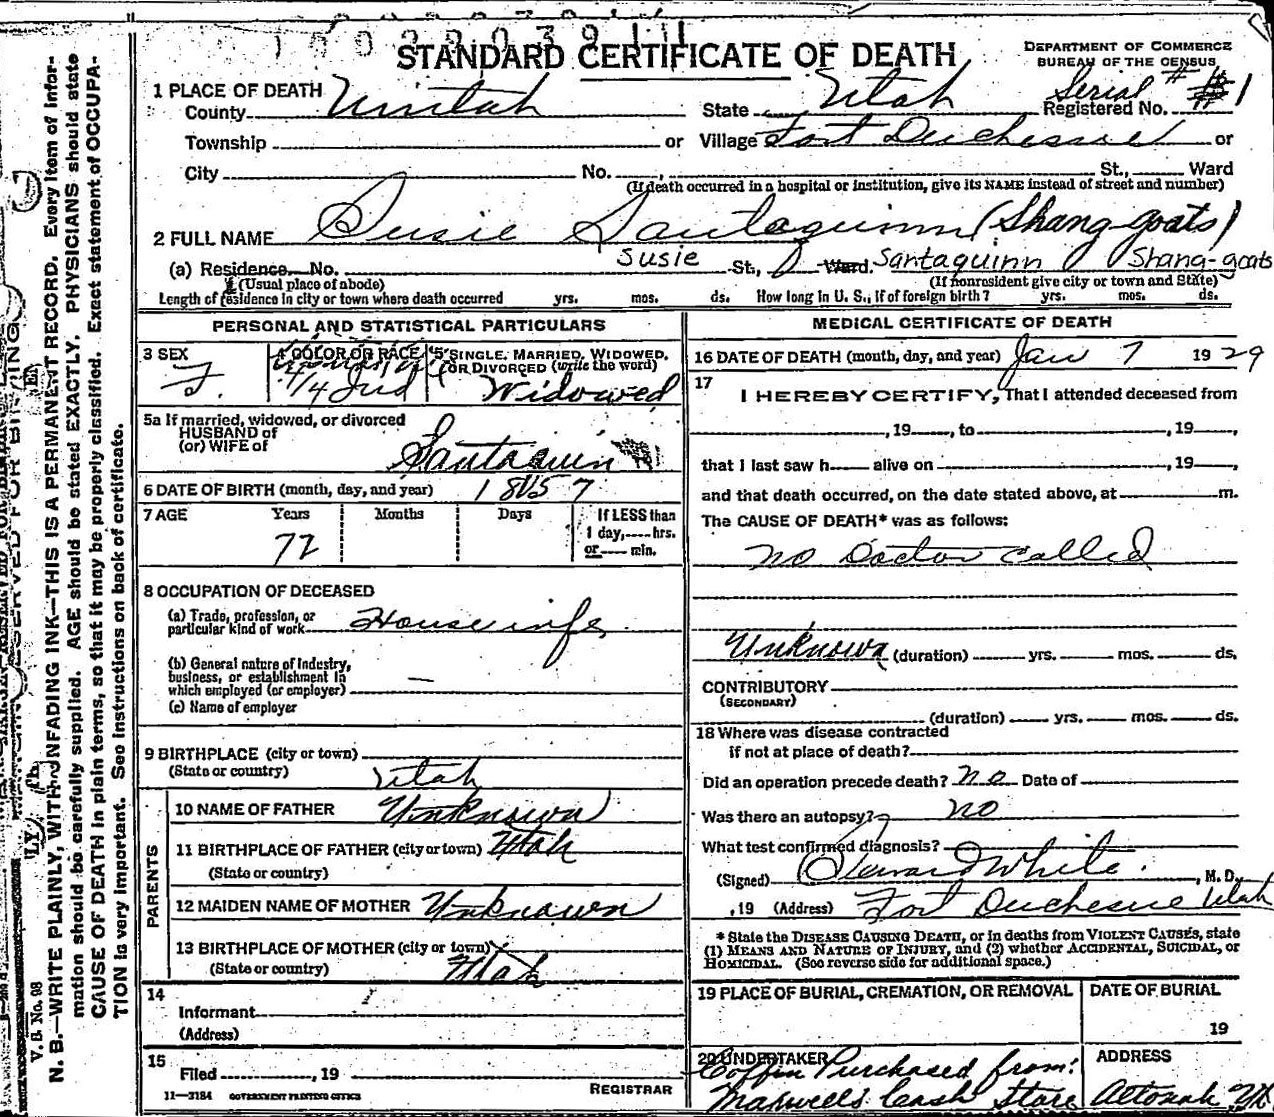 STANDARD CERTIFICATE OF DEATH
DEPARTMENT OF COMMERCE
BUREAU OF THE CENSUS
1 PLACE OF DEATH
County Uintah State Utah Serial # Registered No. 1
Township or Village Fort Duchesne or
City No. , St., Ward
(If death occurred in a hospital or institution, give its NAME instead of street and number)
2 FULL NAME Susie Santaquinn (Shang-goats)
(a) Residence. No. Susie St., Ward. Santaquinn Shang-goats
(Usual place of abode) (If nonresident give city or town and State)
Length of residence in city or town where death occurred yrs. mos. ds. How long in U. S., if of foreign birth? yrs. mos. ds.
PERSONAL AND STATISTICAL PARTICULARS
3 SEX
F.
4 COLOR OR RACE
4/4 Ind
5 SINGLE, MARRIED, WIDOWED,
OR DIVORCED (write the word)
Widowed
5a If married, widowed, or divorced
HUSBAND of
(or) WIFE of Santaquin
6 DATE OF BIRTH (month, day, and year) 1857
7 AGE Years Months Days If LESS than
1 day, hrs.
or min.
72
8 OCCUPATION OF DECEASED
(a) Trade, profession, or
particular kind of work Housewife
(b) General nature of Industry,
business, or establishment in
which employed (or employer) —
(c) Name of employer
9 BIRTHPLACE (city or town)
(State or country) Utah
PARENTS
10 NAME OF FATHER Unknown
11 BIRTHPLACE OF FATHER (city or town) Utah
(State or country)
12 MAIDEN NAME OF MOTHER Unknown
13 BIRTHPLACE OF MOTHER (city or town)
(State or country) Utah
14
Informant
(Address)
15
Filed , 19
REGISTRAR
11—3184 GOVERNMENT PRINTING OFFICE
MEDICAL CERTIFICATE OF DEATH
16 DATE OF DEATH (month, day, and year) Jan 7 1929
17
I HEREBY CERTIFY, That I attended deceased from
, 19 , to , 19 ,
that I last saw h alive on , 19 ,
and that death occurred, on the date stated above, at m.
The CAUSE OF DEATH* was as follows:
No Doctor called
Unknown (duration) yrs. mos. ds.
CONTRIBUTORY
(SECONDARY)
(duration) yrs. mos. ds.
18 Where was disease contracted
if not at place of death?
Did an operation precede death? no Date of
Was there an autopsy? no
What test confirmed diagnosis?
(Signed) White , M. D.
, 19 (Address) Fort Duchesne Utah
* State the DISEASE CAUSING DEATH, or in deaths from VIOLENT CAUSES, state
(1) MEANS AND NATURE OF INJURY, and (2) whether ACCIDENTAL, SUICIDAL, or
HOMICIDAL. (See reverse side for additional space.)
19 PLACE OF BURIAL, CREMATION, OR REMOVAL
DATE OF BURIAL
19
20 UNDERTAKER
Coffin Purchased from:
Maxwells Cash Store
ADDRESS
Altonah, Ut.
V. S. No. 98
N. B.—WRITE PLAINLY, WITH UNFADING INK—THIS IS A PERMANENT RECORD. Every item of infor-
mation should be carefully supplied. AGE should be stated EXACTLY. PHYSICIANS should state
CAUSE OF DEATH in plain terms, so that it may be properly classified. Exact statement of OCCUPA-
TION is very important. See instructions on back of certificate.